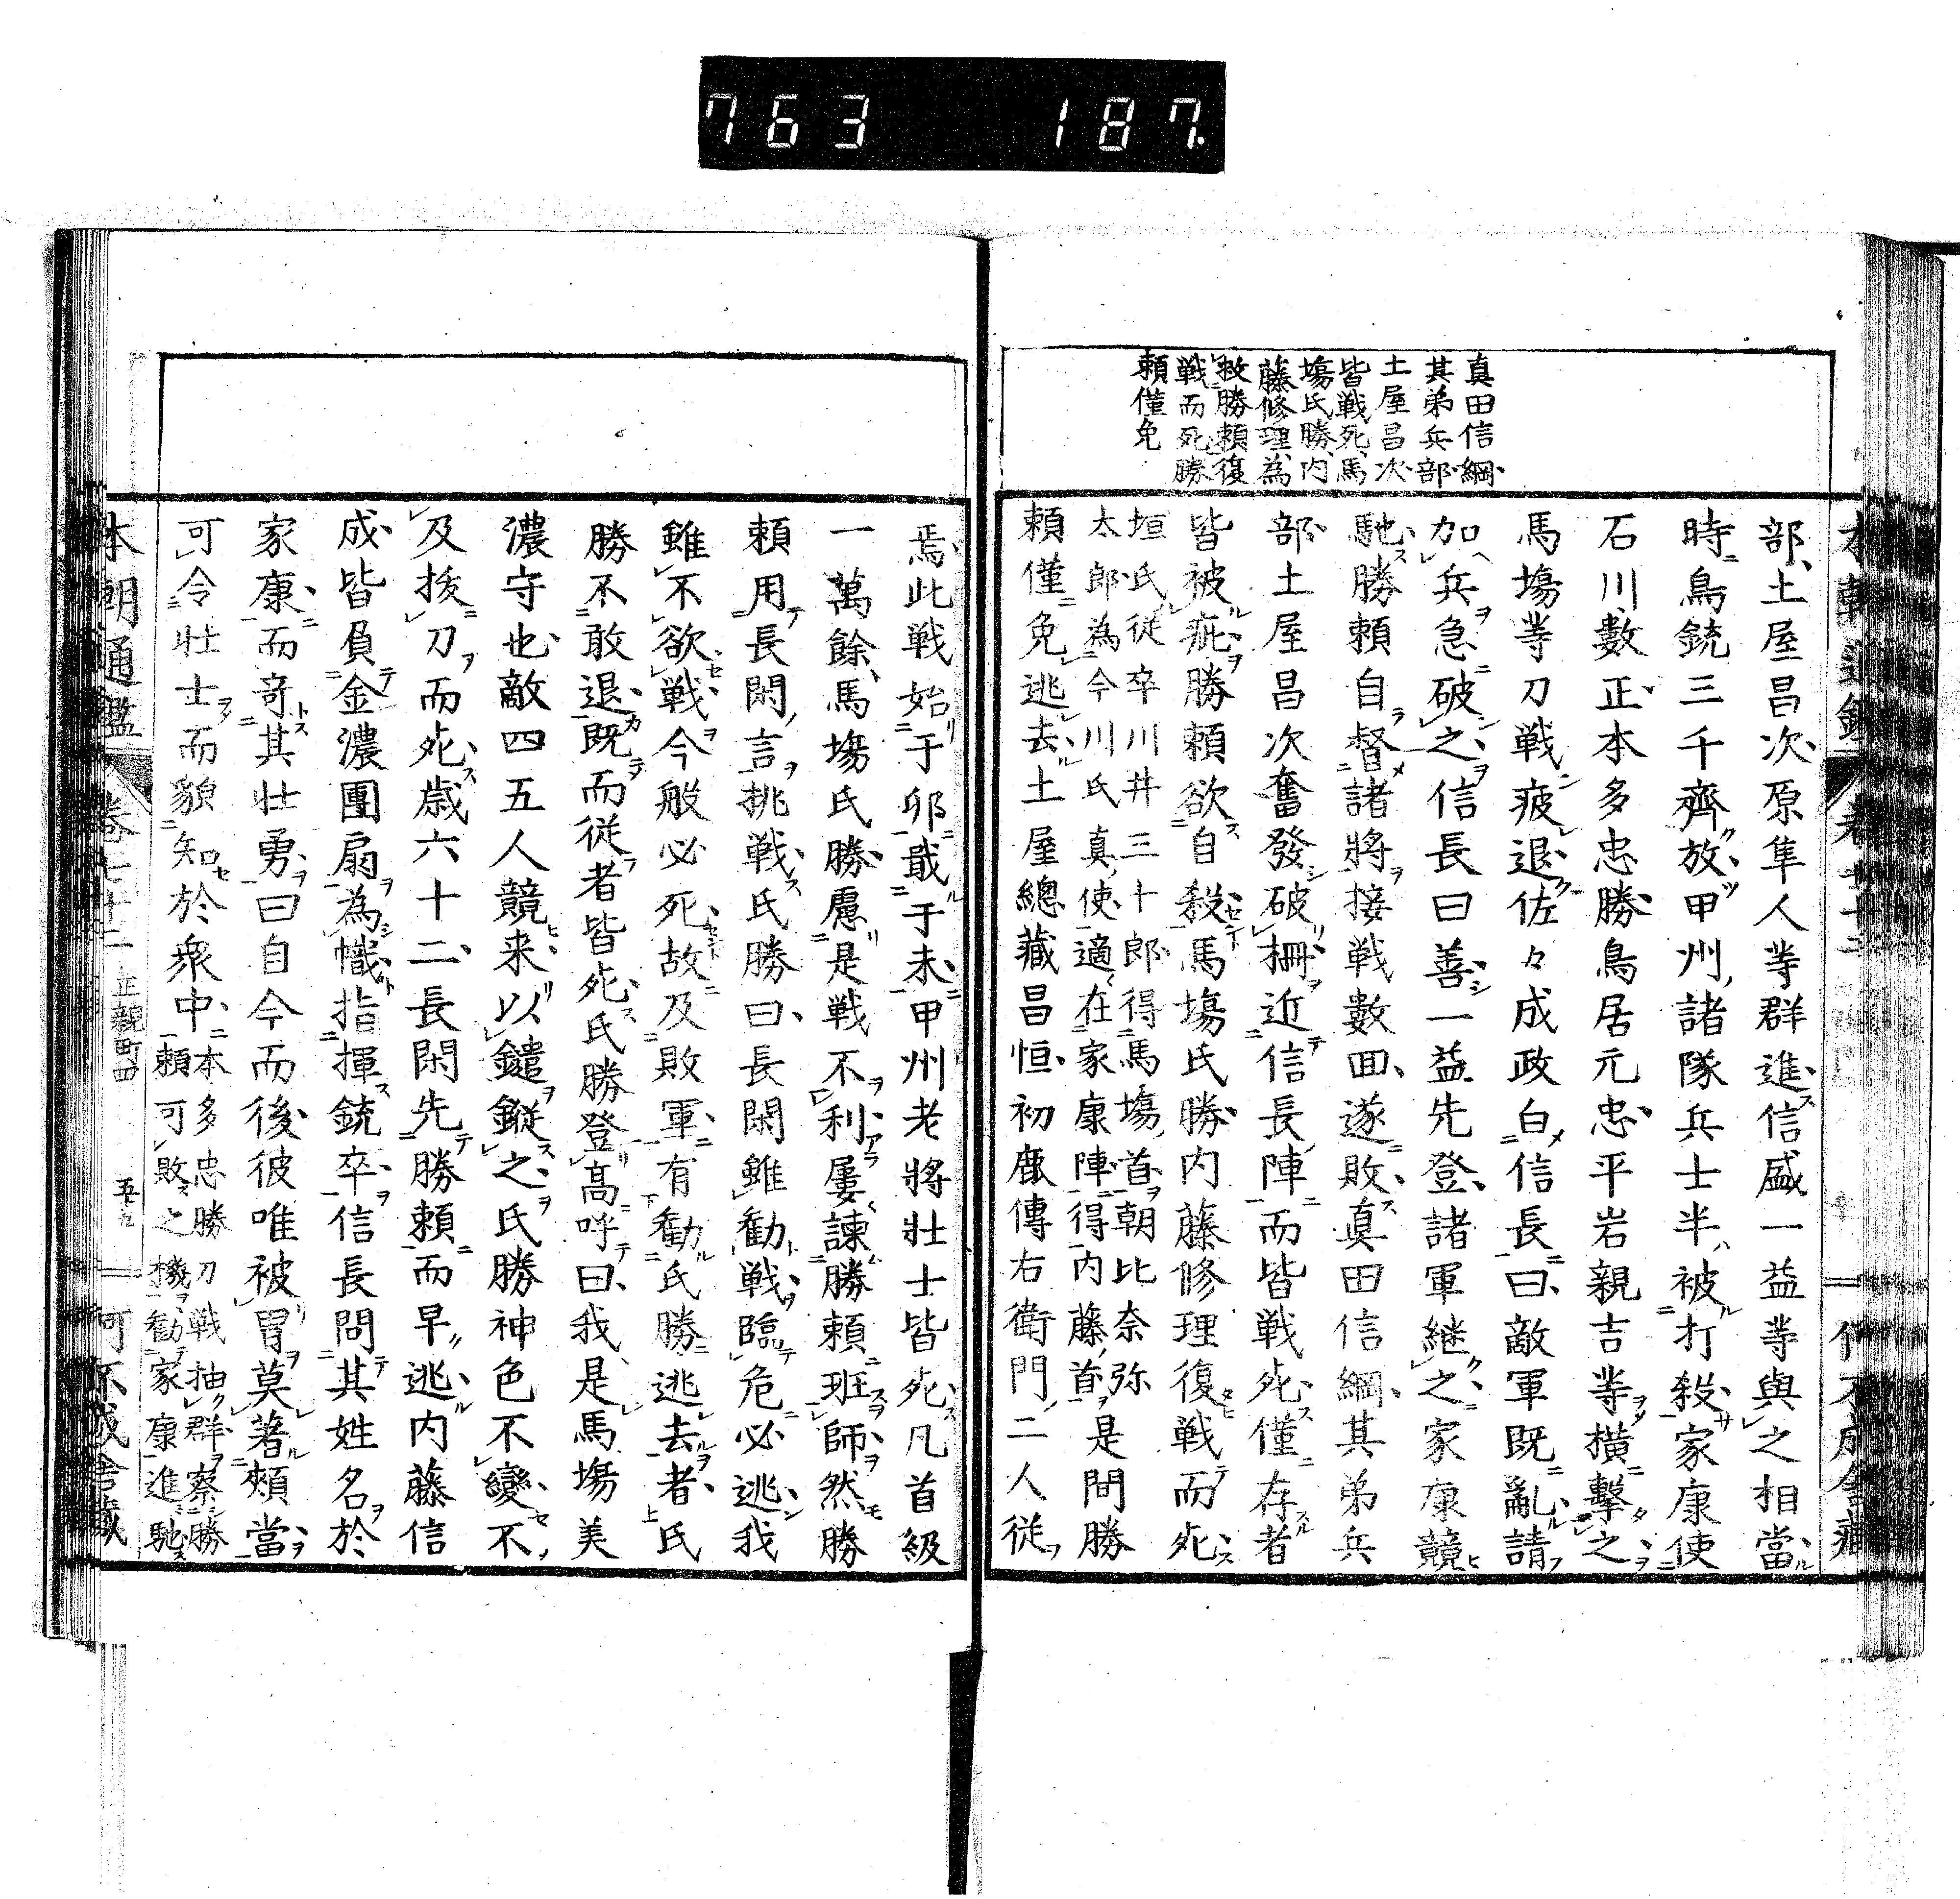 763 187
真田信綱
其弟兵部
土屋昌次
皆戦死馬
塲氏勝内
藤修理為
救勝頼復
戦而死勝
頼僅免
部土屋昌次原隼人等群進信盛一益等與之相當
時鳥銃三千齊放甲州諸隊兵士半被打殺家康使
石川數正本多忠勝鳥居元忠平岩親吉等横擊之
馬塲等刀戦疲退佐々成政白信長曰敵軍既亂請
加兵急破之信長曰善一益先登諸軍継之家康競
馳勝頼自督諸將接戦數囬遂敗真田信綱其弟兵
部土屋昌次奮發破柵近信長陣而皆戦死僅存者
皆被疵勝頼欲自殺馬塲氏勝内藤修理復戦而死
垣氏従卒川井三十郎得馬塲首朝比奈弥
太郎為今川氏真使適在家康陣得内藤首是間勝
頼僅免逃去土屋總藏昌恒初鹿傳右衛門二人従
焉此戦始于卯戢于未甲州老將壮士皆死凡首級
一萬餘馬塲氏勝慮是戦不利屢諫勝頼班師然勝
頼用長閑言挑戦氏勝曰長閑雖勸戦臨危必逃我
雖不欲戦今般必死故及敗軍有勸氏勝逃去者氏
勝不敢退既而従者皆死氏勝登髙呼曰我是馬塲美
濃守也敵四五人競来以鑓鏦之氏勝神色不變不
及抜刀而死歳六十二長閑先勝頼而早逃内藤信
成皆負金濃團扇為幟指揮銃卒信長問其姓名於
家康而竒其壮勇曰自今而後彼唯被冑莫著頰當
可令壮士而貌知於衆中
本多忠勝刀戦抽群察勝
頼可敗之機勸家康進馳
本朝通鑑 卷七十二 正親町四 五十九